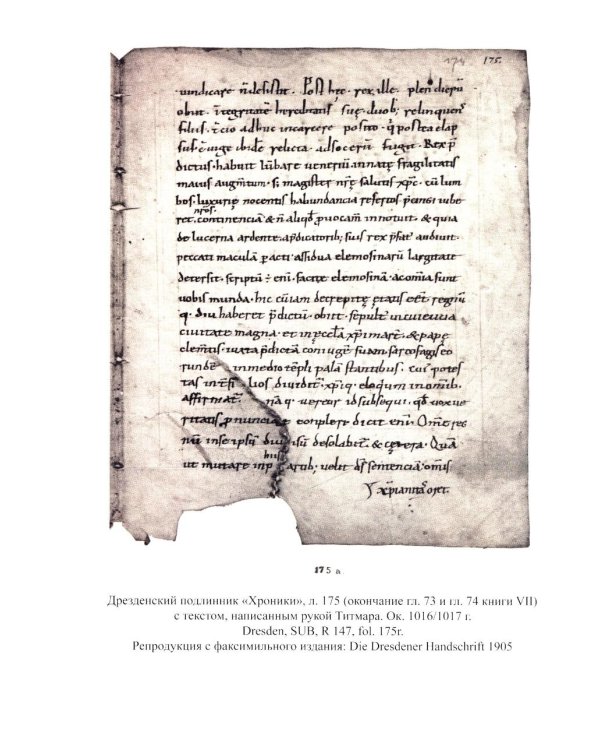 174 175.
uindicare ñ desistit. Post hec rex ille plen dierū
obiit integritatē hereditatis suę duob; relinquens
filiis. tcio adhuc in carcere posito. q postea elap
ibidē relicta ad socerum fugit. Rex p̄
dictus habuit lūbare ueneriū innatę fragilitatis
maius augmtum. S; magister nr̄ę salutis xp̄c. cū lum
bos luxurię nocentis habundancia refertos p̄cingi iube
nr̄os.
ret. continenciā & ñ aliqd̄ puocam innotuit. & quia
de lucerna ardente ap̄dicatorib; suis rex p̄fat audiuit.
peccati maculā pacti assidua elemosinarū largitate
detersit. scriptū ÷ eni. facite elemosinā & omia sunt
uobis munda. hic cū iam decrepitę ętatis eēt regnū
q. diu haberet p̄dictū. obiit. sepult in cuieuua
ciuitate magna. et in ęcclā xp̄i mart̄. & papę
clemtis. iuxta p̄dictā coniugē suam. sarcofagis eo
runde in medio tēpli palā stantibus. cui potes
tas int̄ filios diuidit. xp̄iq. eloquiū in omib.
affirmat̄. na q. uereor id subsequi. qd̄ uox ue
ritatis pnuncia conplere dicit eni. Om̄e reg
nū in se ipsū diuisū desolabit. & cętera. Oret
ut mutare in p his artib; uelit ds̄ sentenciā om̄is
xp̄ianitas oret.
175 a
Дрезденский подлинник «Хроники», л. 175 (окончание гл. 73 и гл. 74 книги VII)
с текстом, написанным рукой Титмара. Ок. 1016/1017 г.
Dresden, SUB, R 147, fol. 175r.
Репродукция с факсимильного издания: Die Dresdener Handschrift 1905